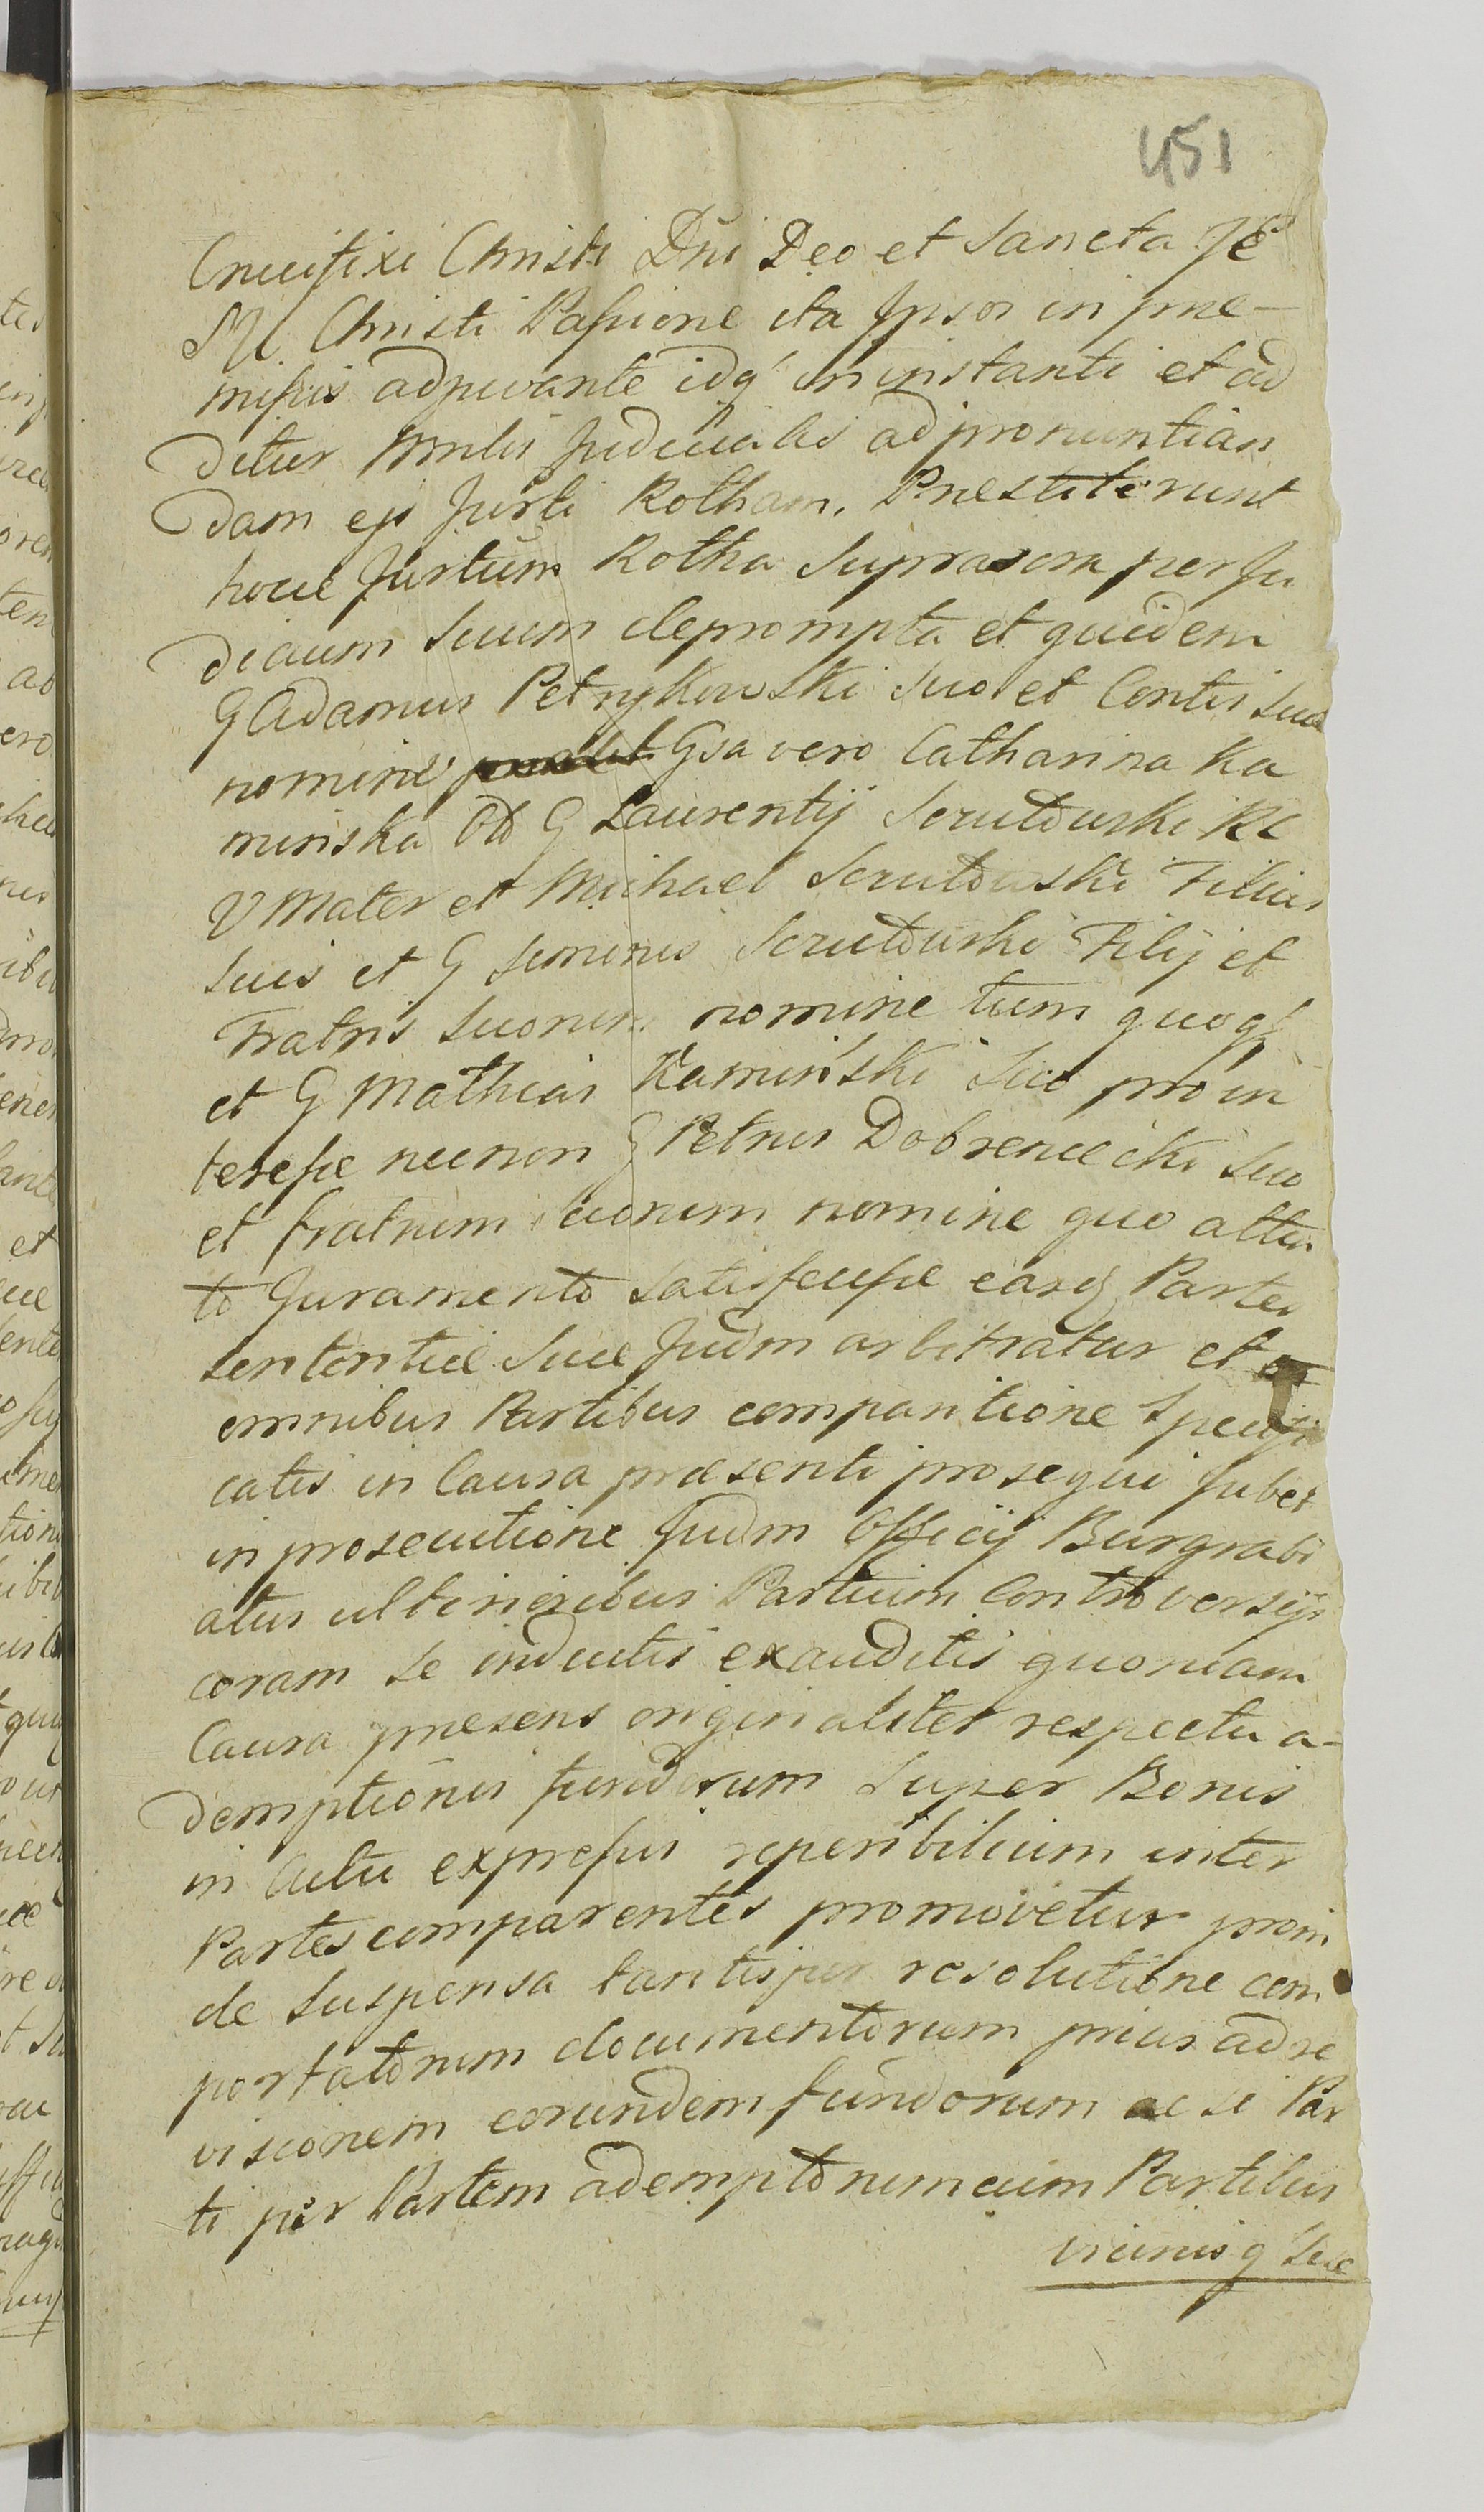 451
Crucifixi Christi Dni Deo et Sancta Je
su Christi Passione ita Ipsos in prae-
missis adjuvante idq in instanti et ad
ditur Mnlis Judicialis ad pronuntian
dam ejs Jurti Rotham. Praestiterunt
hocce Jurtum Rotha suprascra per Ju
dicium suum deprompta et quidem
G Adamus Petrykowski suo et Contis suae
nomine Gsa vero Catharina Ka
minska Od G Laurentij Scrutduski Rc
V Mater et Michael Scrutduski Filius
suis et G Simonis Scrutduski Filij et
Fratris suorum nomine tum quoq
et G Mathias Kamiński suo pro in
teresse necnon G Petrus Dobreniecki suo
et fratrum suorum nomine quo atten
to Juramento satisfecisse easq Partes
sententiae suae Judm arbitratur et
omnibus Partibus comparitione specifi
catis in Causa praesenti prosequi jubet
in prosecutione Judm Officij Burgrabi
atus ulterioribus Partium Controversijs
coram se inductis exauditis quoniam
Causa praesens originaliter respectu a-
demptionis fundorum super Bonis
in Actu expressis reperibilium inter
Partes comparentes promovetur proin
de suspensa tantisper resolutione com
portatorum documentorum prius ad re
visionem eorundem fundorum ac si Par
ti per Partem ademptorum cum Partibus
vicinis q sese